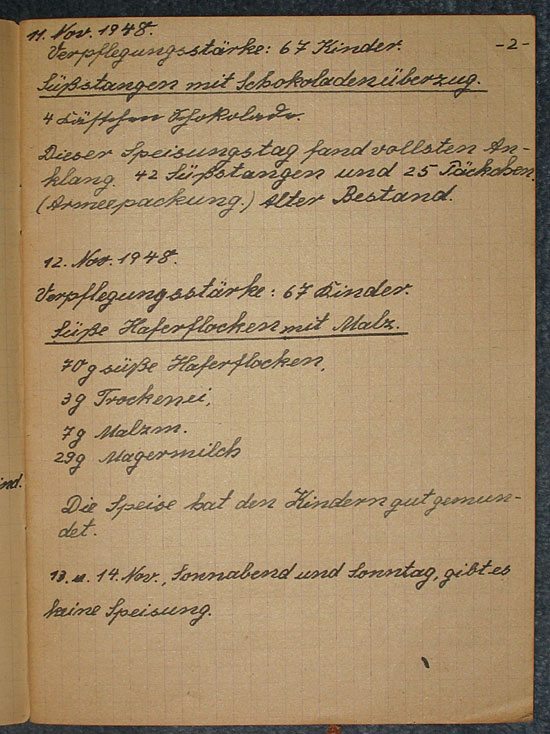 11. Nov. 1948.
Verpflegungsstärke: 67 Kinder.
-2-
Süßstangen mit Schokoladenüberzug.
4 Schokolade.
Dieser Speisungstag fand vollsten An-
klang. 42 Süßstangen und 25 Päckchen
(Armeepackung.) Alter Bestand.
12. Nov. 1948.
Verpflegungsstärke: 67 Kinder.
Süße Haferflocken mit Malz.
70 g süße Haferflocken,
3g Trockenei,
7g Malzm.
29g Magermilch
ind.
Die Speise hat den Kindern gut gemun-
det.
13. u. 14. Nov., Sonnabend und Sonntag, gibt es
keine Speisung.